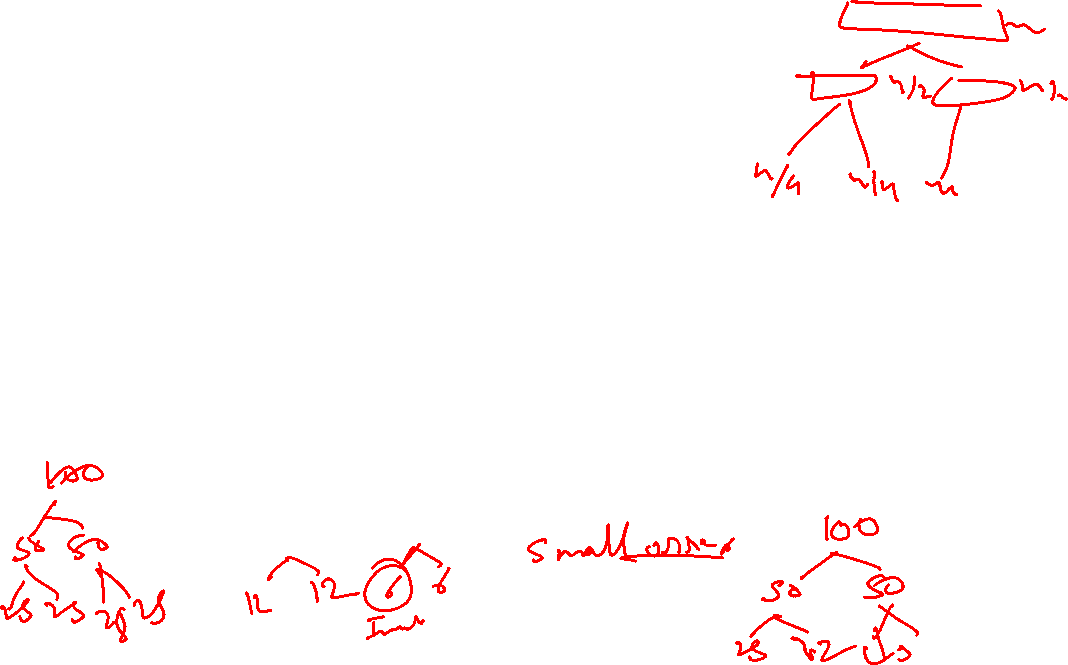 n
n/2 n/2
n/4 n/4
100
50 50
25 25 25 25
12 12 6 6
small
100
50 50
25